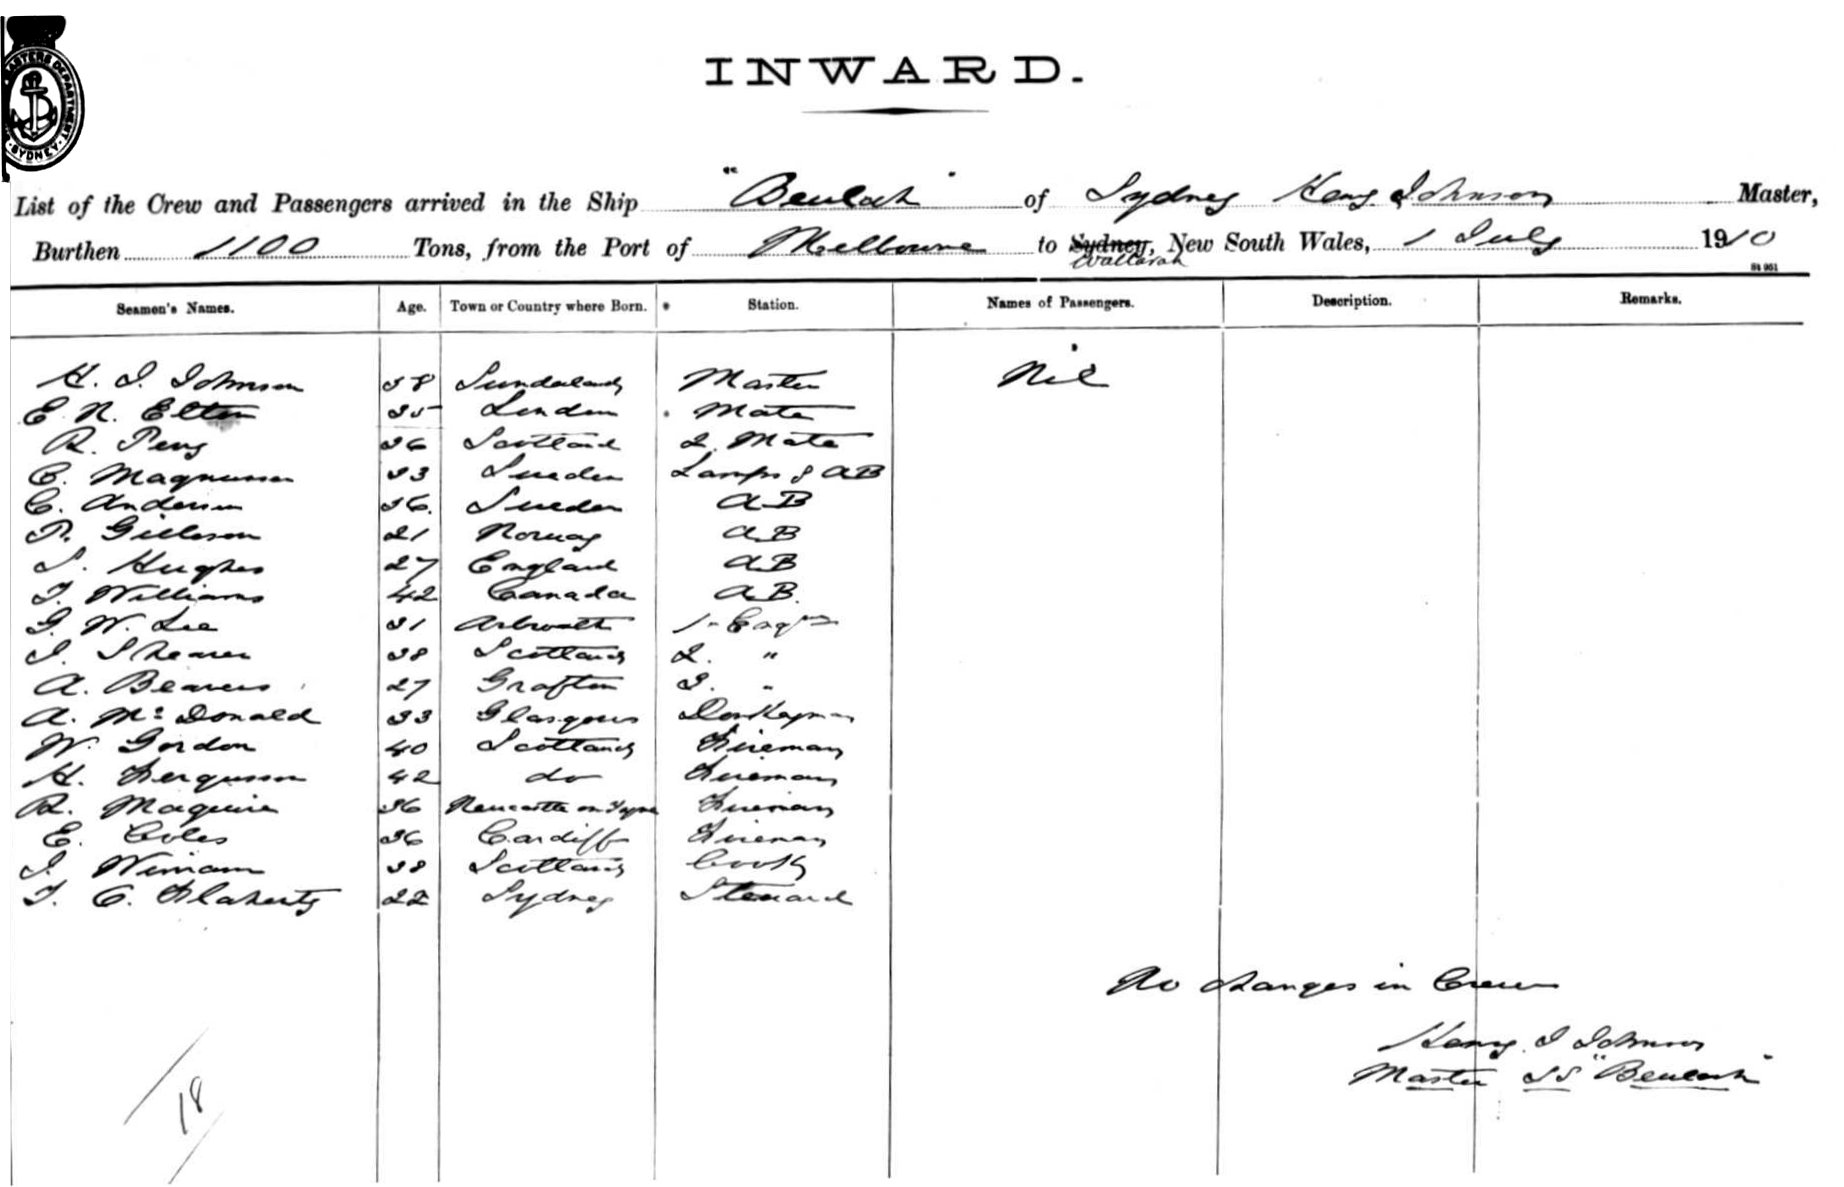 MASTERS DEPARTMENT
SYDNEY
INWARD.
List of the Crew and Passengers arrived in the Ship "Beulah" of Sydney Henry Johnson Master,
Burthen 1100 Tons, from the Port of Melbourne to Sydney, New South Wales, 1 July 1910
Wallarah
Seamen's Names. Age. Town or Country where Born. * Station. Names of Passengers. Description. Remarks.
H. J. Johnson 38 Sunderland Master Nil
E. R. Elton 35 London Mate
R. 36 Scotland 2. Mate
C. Magnusson 33 Sweden Lamps & AB
C. Anderson 36. Sweden AB
P. 21 Norway AB
S. Hughes 27 England AB
T. Williams 42 Canada AB.
G. W. Lee 31 Arbroath 1st Engnr
J. Shearer 38 Scotland 2. "
A. Beavers 27 Grafton 3. "
A. McDonald 33 Glasgow Donkeyman
W. Gordon 40 Scotland Fireman
H. Ferguson 42 do Fireman
R. Maguire 36 Newcastle on Tyne Fireman
E. Coles 36 Cardiff Fireman
J. 38 Scotland Cook
T. C. Flaherty 22 Sydney Steward
No changes in Crew
Henry J Johnson
Master SS "Beulah"
18